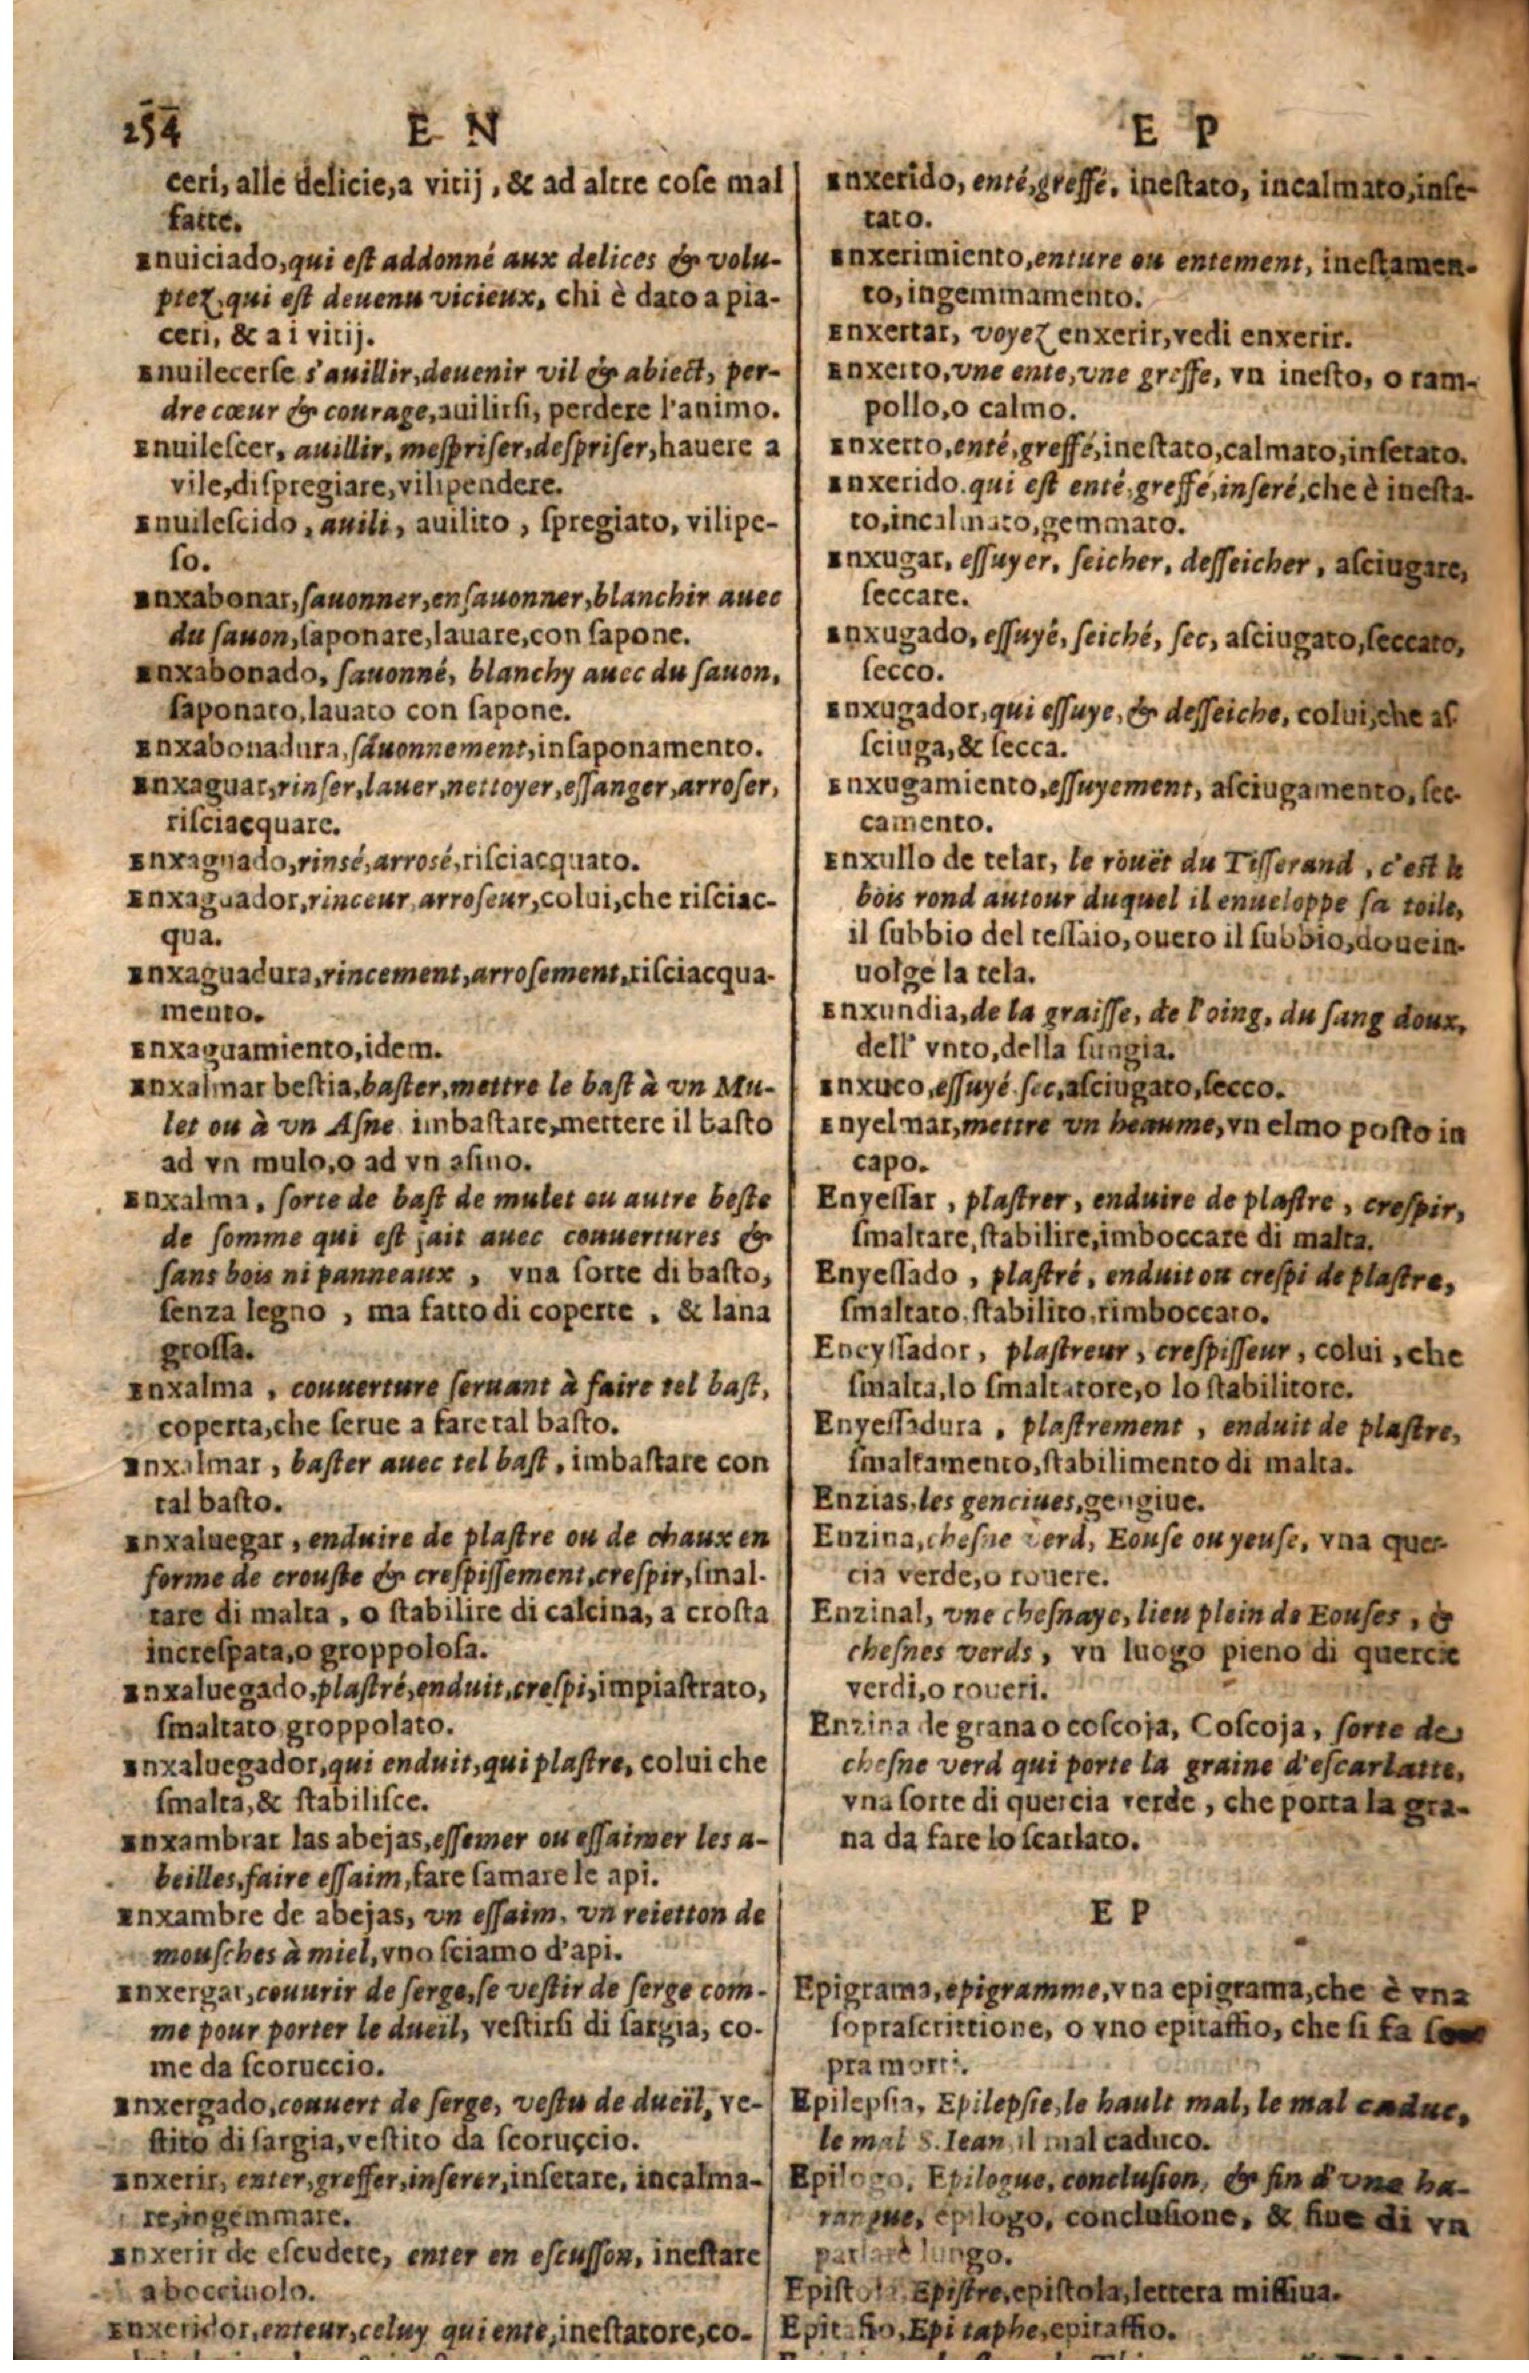 254
E N
ceri, alle delicie,a vitij, & ad altre coſe mal
fatte.
Enuiciado,qui eſt addonné aux delices & volu-
ptez,qui eſt deuenu vicieux, chi è dato a pia-
ceri, & a i vitij.
Enuilecerſe s'auillir,deuenir vil & abiect, per-
dre cœur & courage,auilirſi, perdere l'animo.
Enuileſcer, auillir, meſpriſer,deſpriſer,hauere a
vile,diſpregiare,vilipendere.
Enuileſcido, auili, auilito, ſpregiato, vilipe-
ſo.
Enxabonar,ſauonner,enſauonner,blanchir auec
du ſauon,ſaponare,lauare,con ſapone.
Enxabonado, ſauonné, blanchy auec du ſauon,
ſaponato,lauato con ſapone.
Enxabonadura,ſauonnement,inſaponamento.
Enxaguar,rinſer,lauer,nettoyer,eſſanger,arroſer,
riſciacquare.
Enxaguado,rinsé,arrosé,riſciacquato.
Enxaguador,rinceur,arroſeur,colui,che riſciac-
qua.
Enxaguadura,rincement,arroſement,riſciacqua-
mento.
Enxaguamiento,idem.
Enxalmar beſtia,baſter,mettre le baſt à vn Mu-
let ou à vn Aſne imbaſtare,mettere il baſto
ad vn mulo,o ad vn aſino.
Enxalma, ſorte de baſt de mulet ou autre beſte
de ſomme qui eſt fait auec couuertures &
ſans bois ni panneaux, vna ſorte di baſto,
ſenza legno, ma fatto di coperte, & lana
groſſa.
Enxalma, couuerture ſeruant à faire tel baſt,
coperta,che ſerue a fare tal baſto.
Enxalmar, baſter auec tel baſt, imbaſtare con
tal baſto.
Enxaluegar, enduire de plaſtre ou de chaux en
forme de crouſte & creſpiſſement,creſpir,ſmal-
tare di malta, o ſtabilire di calcina, a croſta
increſpata,o groppoloſa.
Enxaluegado,plaſtré,enduit,creſpi,impiaſtrato,
ſmaltato groppolato.
Enxaluegador,qui enduit,qui plaſtre, colui che
ſmalta,& ſtabiliſce.
Enxambrar las abejas,eſſemer ou eſſaimer les a-
beilles,faire eſſaim,fare ſamare le api.
Enxambre de abejas, vn eſſaim, vn reietton de
mouſches à miel,vno ſciamo d'api.
Enxergar,couurir de ſerge,ſe veſtir de ſerge com-
me pour porter le dueil, veſtirſi di ſargia, co-
me da ſcoruccio.
Enxergado,couuert de ſerge, veſtu de dueil, ve-
ſtito di ſargia,veſtito da ſcoruccio.
Enxerir, enter,greffer,inſerer,inſetare, incalma-
re,ingemmare.
Enxerir de eſcudete, enter en eſcuſſon, ineſtare
a bocciuolo.
Enxeridor,enteur,celuy qui ente,ineſtatore,co-
E P
Enxerido, enté,greffé, ineſtato, incalmato,inſe-
tato.
Enxerimiento,enture ou entement, ineſtamen-
to,ingemmamento.
Enxertar, voyez enxerir,vedi enxerir.
Enxerto,vne ente,vne greffe, vn ineſto, o ram-
pollo,o calmo.
Enxerto,enté,greffé,ineſtato,calmato,inſetato.
Enxerido.qui eſt enté,greffé,inſeré,che è ineſta-
to,incalmato,gemmato.
Enxugar, eſſuyer, ſeicher, deſſeicher, aſciugare,
ſeccare.
Enxugado, eſſuyé, ſeiché, ſec, aſciugato,ſeccato,
ſecco.
Enxugador,qui eſſuye,& deſſeiche, colui,che aſ
ſciuga,& ſecca.
Enxugamiento,eſſuyement, aſciugamento, ſec-
camento.
Enxullo de telar, le rouët du Tiſſerand, c'eſt le
bois rond autour duquel il enueloppe ſa toile,
il ſubbio del teſſaio,ouero il ſubbio,doue in-
uolge la tela.
Enxundia,de la graiſſe, de l'oing, du ſang doux,
dell' vnto,della ſungia.
Enxuto,eſſuyé ſec,aſciugato,ſecco.
Enyelmar,mettre vn heaume,vn elmo poſto in
capo.
Enyeſſar, plaſtrer, enduire de plaſtre, creſpir,
ſmaltare,ſtabilire,imboccare di malta.
Enyeſſado, plaſtré, enduit ou creſpi de plaſtre,
ſmaltato,ſtabilito,rimboccato.
Eneyſſador, plaſtreur, creſpiſſeur, colui, che
ſmalta,lo ſmaltatore,o lo ſtabilitore.
Enyeſſadura, plaſtrement, enduit de plaſtre,
ſmaltamento,ſtabilimento di malta.
Enzias,les genciues,gengiue.
Enzina,cheſne verd, Eouſe ou yeuſe, vna quer-
cia verde,o rouere.
Enzinal, vne cheſnaye,lieu plein de Eouſes, &
cheſnes verds, vn luogo pieno di quercie
verdi,o roueri.
Enzina de grana o coſcoja, Coſcoja, ſorte de
cheſne verd qui porte la graine d'eſcarlatte,
vna ſorte di quercia verde, che porta la gra-
na da fare lo ſcarlato.
E P
Epigrama,epigramme,vna epigrama,che è vna
ſopraſcrittione, o vno epitaffio, che ſi fa
pra morti.
Epilepſia, Epilepſie,le hault mal, le mal caduc,
le mal S. Iean, il mal caduco.
Epilogo, Epilogue, concluſion, & fin d'vne ha-
rangue, epilogo, concluſione, & fine di vn
parlare lungo.
Epiſtola Epiſtre,epiſtola,lettera miſſiua.
Epitafio,Epitaphe,epitaffio.